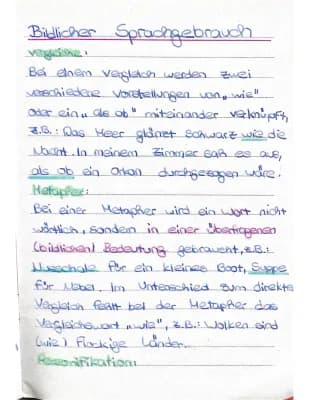 Bildlicher Sprachgebrauch
Vergleiche:
Bei einem Vergleich werden zwei
verschiedene Vorstellungen von „wie"
oder ein „als ob" miteinander verknüpft,
z.B.: Das Meer glänzt schwarz wie die
Nacht. In meinem Zimmer sah es aus,
als ob ein Orkan durchgezogen wäre.
Metapher:
Bei einer Metapher wird ein Wort nicht
wörtlich, sondern in einer übertragenen
(bildlichen) Bedeutung gebraucht, z.B.:
Nussschale für ein kleines Boot, Suppe
für Nebel. Im Unterschied zum direkte
Vergleich fehlt bei der Metapher das
Vergleichswort „wie", z.B.: Wolken sind
(wie) flockige Länder.
Personifikation: